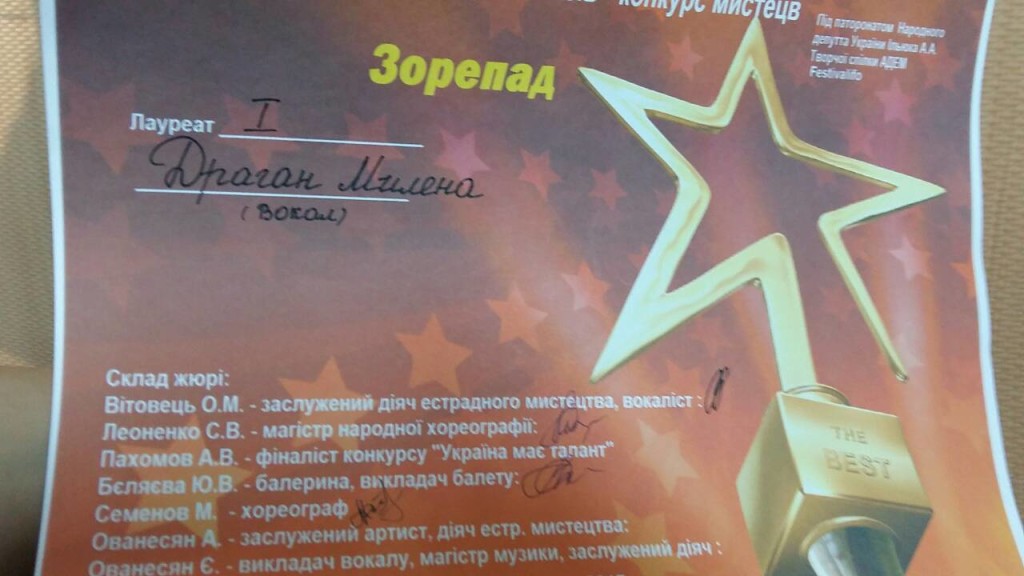 конкурс мистецв
Під паторонатом Народного
депутта України Ільюка А.А.
Творчої спілки АДЕМ
Festivalifo
Зорепад
Лауреат I
Драган Милена
(вокал)
Склад жюрі:
Вітовець О.М. - заслужений діяч естрадного мистецтва, вокаліст :
Леоненко С.В. - магістр народної хореографії:
Пахомов А.В. - фіналіст конкурсу "Україна має талант"
Бєляєва Ю.В. - балерина, викладач балету:
Семенов М. - хореограф
Ованесян А. - заслужений артист, діяч естр. мистецтва:
Ованесян Є. - викладач вокалу, магістр музики, заслужений діяч :
THE
BEST